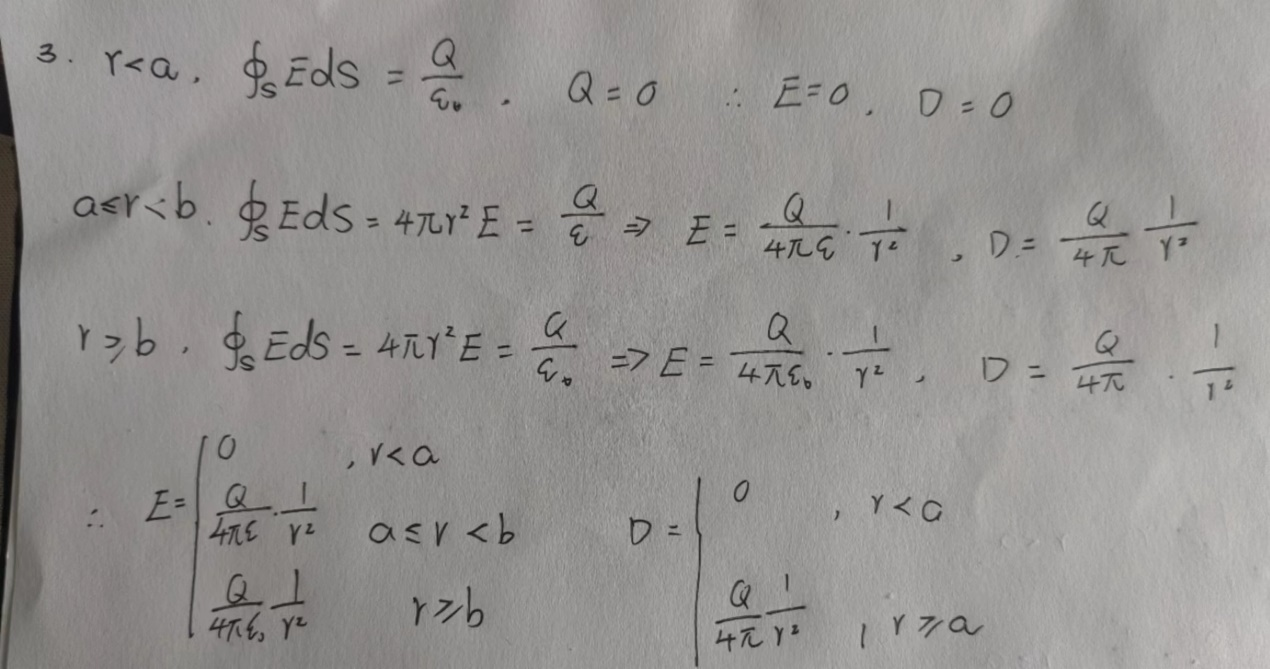 3. r<a. ∮ₛEdS = Q/ε₀. Q=0 ∴ E=0. D=0
a≤r<b. ∮ₛEdS = 4πr²E = Q/ε ⇒ E = Q/4πε · 1/r², D = Q/4π 1/r²
r≥b. ∮ₛEdS = 4πr²E = Q/ε₀ ⇒ E = Q/4πε₀ · 1/r², D = Q/4π · 1/r²
∴ E = { 0, r<a
Q/4πε · 1/r² a≤r<b
Q/4πε₀ 1/r² r≥b
D = { 0, r<a
Q/4π 1/r², r≥a